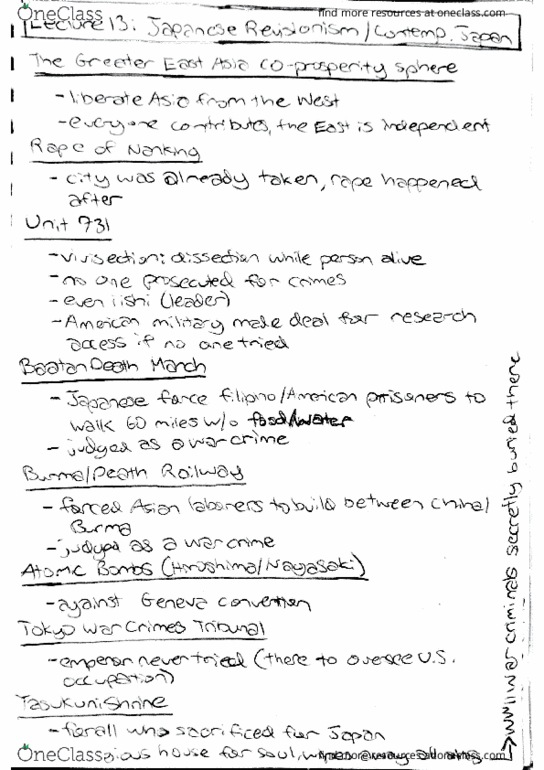 OneClass
find more resources at oneclass.com
Lecture 13: Japanese Revisionism/Contemp. Japan
The Greater East Asia co-prosperity sphere
-liberate Asia from the West
-everyone contributes, the East is independent
Rape of Nanking
- city was already taken, rape happened
after
Unit 731
-vivisection: dissection while person alive
-no one prosecuted for crimes
-even iishi (leader)
-American military made deal for research
access if no one tried
Baatan Death March
- Japanese force filipino/American prisoners to
walk 60 miles w/o food/water
- judged as a war crime
Burma/Death Railway
- forced Asian laborers to build between China/
Burma
-judged as a war crime
Atomic Bombs (Hiroshima/Nagasaki)
-against Geneva convention
Tokyo War Crimes Tribunal
-emperor never tried (there to oversee U.S.
occupation)
Yasukuni Shrine
- for all who sacrificed for Japan
OneClass
house for soul,
oneclass.com
war criminals secretly buried there